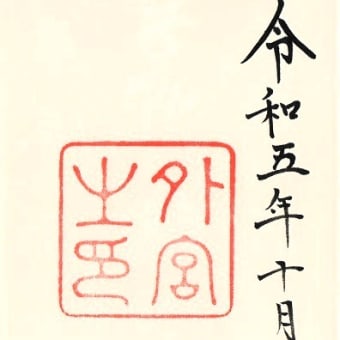 令和五年十月
外宮
之印